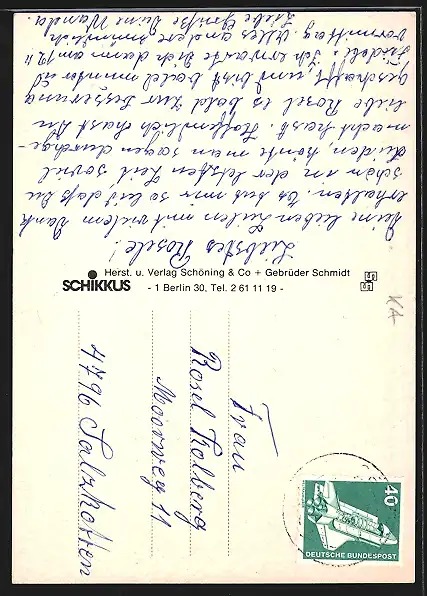 Liebstes Rosele!
Deine lieben Zeilen mit vielem Dank
erhalten. Es tut mir so leid daß Du
schon in der letzten Zeit soviel
leiden, könnte man sagen durchge-
macht hast. Hoffendlich hast Du
liebe Rosel es bald zur Besserung
geschafft, und bist bald munter u
fidel. Ich erwarte Dich dann am 12.
vormittag. Alles andere mündlich
Liebe Grüße Deine Wanda.
Herst. u. Verlag Schöning & Co + Gebrüder Schmidt
SCHIKKUS
- 1 Berlin 30, Tel. 2 61 11 19 -
KA-
Frau
Rosel Kolberg
Moorweg 11
4796 Salzkotten
40
DEUTSCHE BUNDESPOST